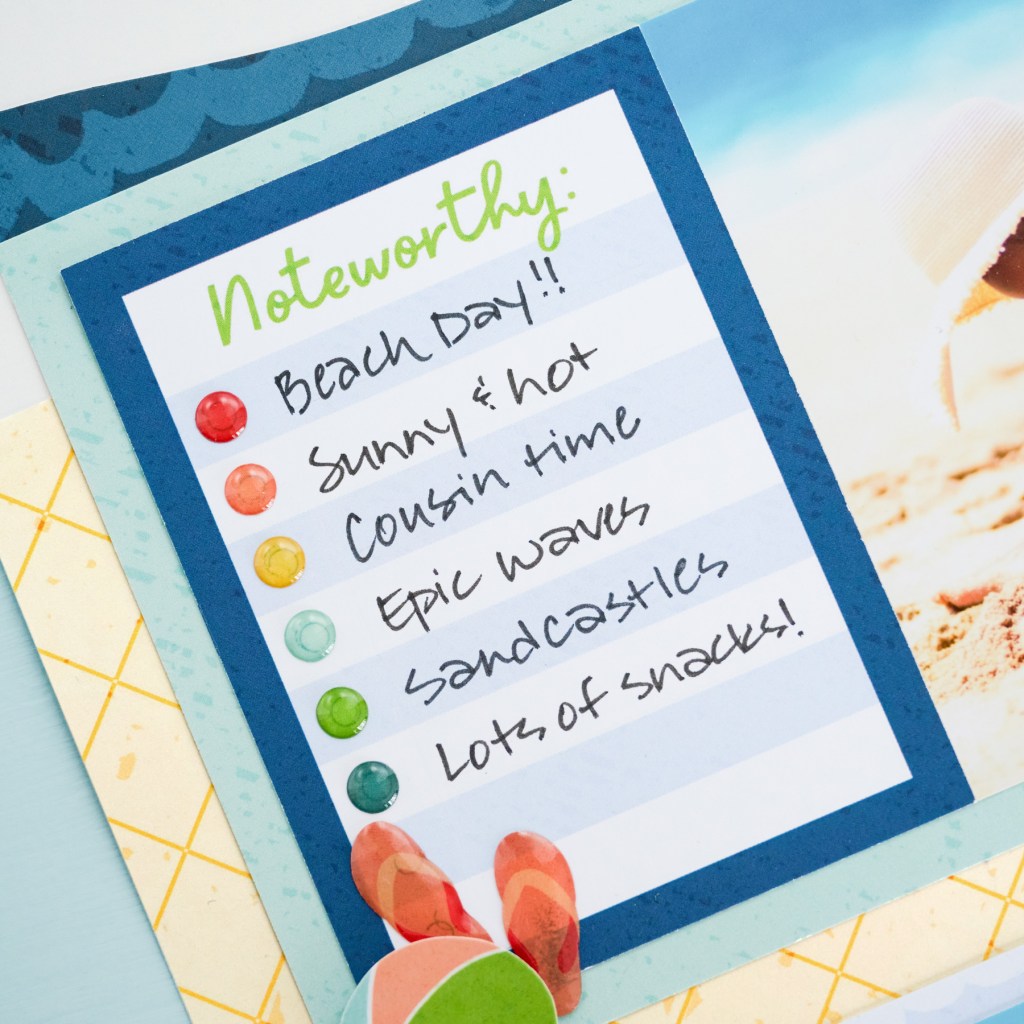 Noteworthy:
Beach Day!!
Sunny & hot
Cousin time
Epic waves
Sandcastles
Lots of snacks!